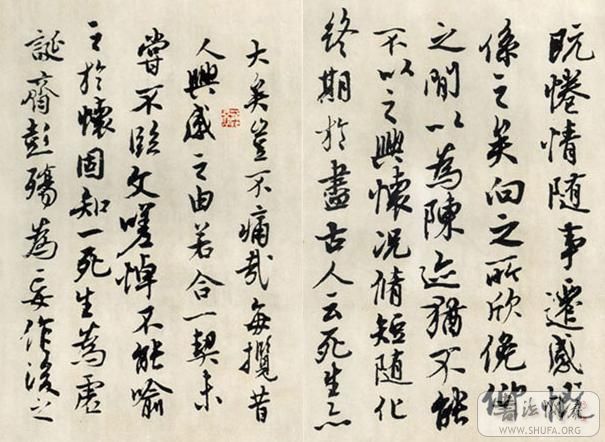 既惓情随事遷感慨
係之矣向之所欣俛仰
之間以為陳迹猶不能
不以之興懷况脩短随化
終期於盡古人云死生亦
大矣豈不痛哉每攬昔
人興感之由若合一契未
嘗不臨文嗟悼不能喻
之於懷固知一死生為虛
誕齊彭殤為妄作後之
WWW.SHUFA.ORG